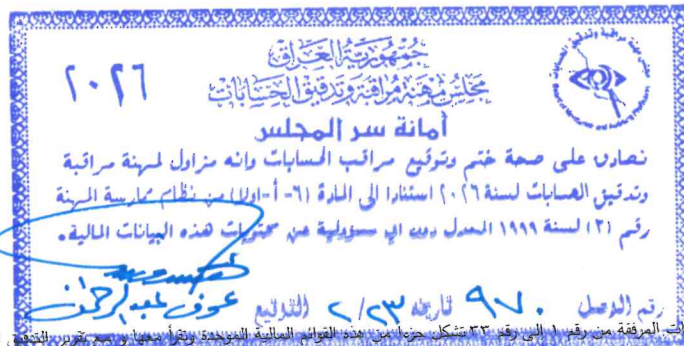 ٢٠٢٦
جمهورية العراق
مجلس مهنة مراقبة وتدقيق الحسابات
أمانة سر المجلس
نصادق على صحة ختم وتوقيع مراقب الحسابات وانه مزاول لمهنة مراقبة
وتدقيق الحسابات لسنة ٢٠٢٦ استنادا الى المادة (٦-أ-اولا) من نظام ممارسة المهنة
رقم (٣) لسنة ١٩٩٩ المعدل دون اي مسؤولية عن محتويات هذه البيانات المالية.
رقم الوصل ٩٧٠ تاريخه ٢/٢٣ التوقيع
عوف عبد الرحمن
ات المرفقة من رقم ١ إلى رقم ٣٣ تشكل جزءا من هذه القوائم المالية الموحدة وتقرأ معها و مع تقرير التدقيق